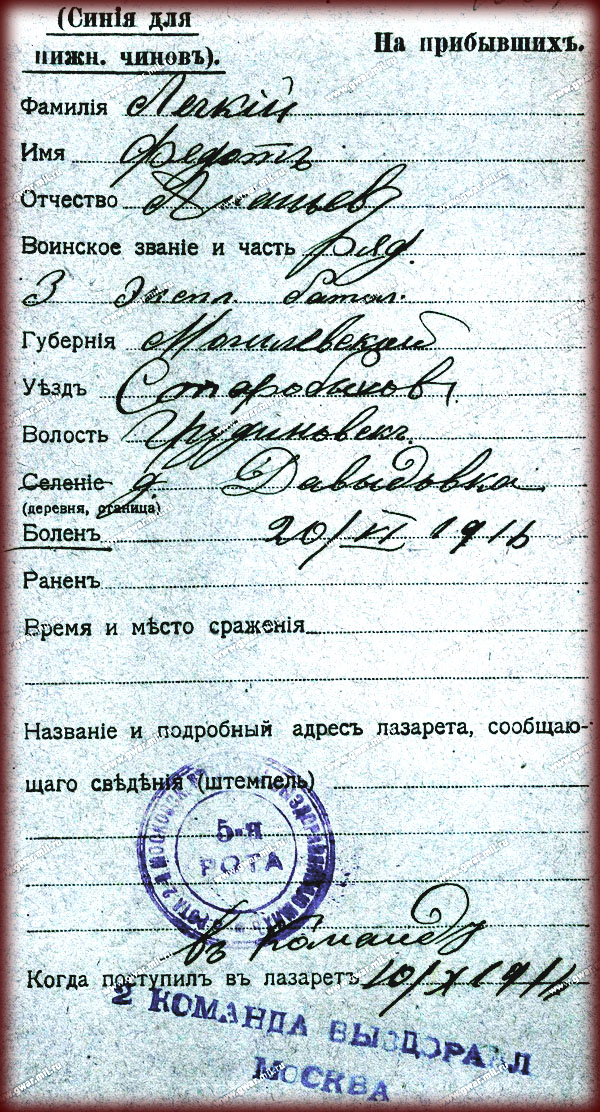 (Синія для
нижн. чиновъ).
На прибывшихъ.
Фамилія Легкій
Имя Федотъ
Отчество Ананьев
Воинское званіе и часть ряд.
3 Экспл. батал.
Губернія Могилевской
Уѣздъ Старобыхов
Волость Грудиновск.
Селеніе д. Давыдовка
(деревня, станица)
Боленъ 20/VI 1916
Раненъ
Время и мѣсто сраженія
Названіе и подробный адресъ лазарета, сообщаю-
щаго свѣдѣнія (штемпель)
5-я
РОТА
въ Команду
Когда поступилъ въ лазаретъ 10/X 191
2 КОМАНДА ВЫЗДОРАВЛ
МОСКВА